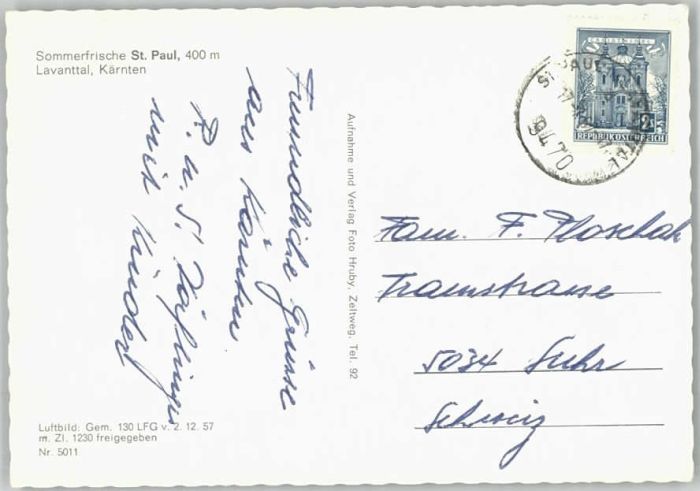 Sommerfrische St. Paul, 400 m
Lavanttal, Kärnten
Freundliche Grüsse
aus Kärnten
R. u. S.
mit Kinder
Luftbild: Gem. 130 LFG v. 2. 12. 57
m. Zl. 1230 freigegeben
Nr. 5011
Aufnahme und Verlag Foto Hruby, Zeltweg, Tel. 92
CHRISTKINDL
2 S
REPUBLIK ÖSTERREICH
9470
Fam. F. Ploschak
Tramstrasse
5034 Suhr
Schweiz